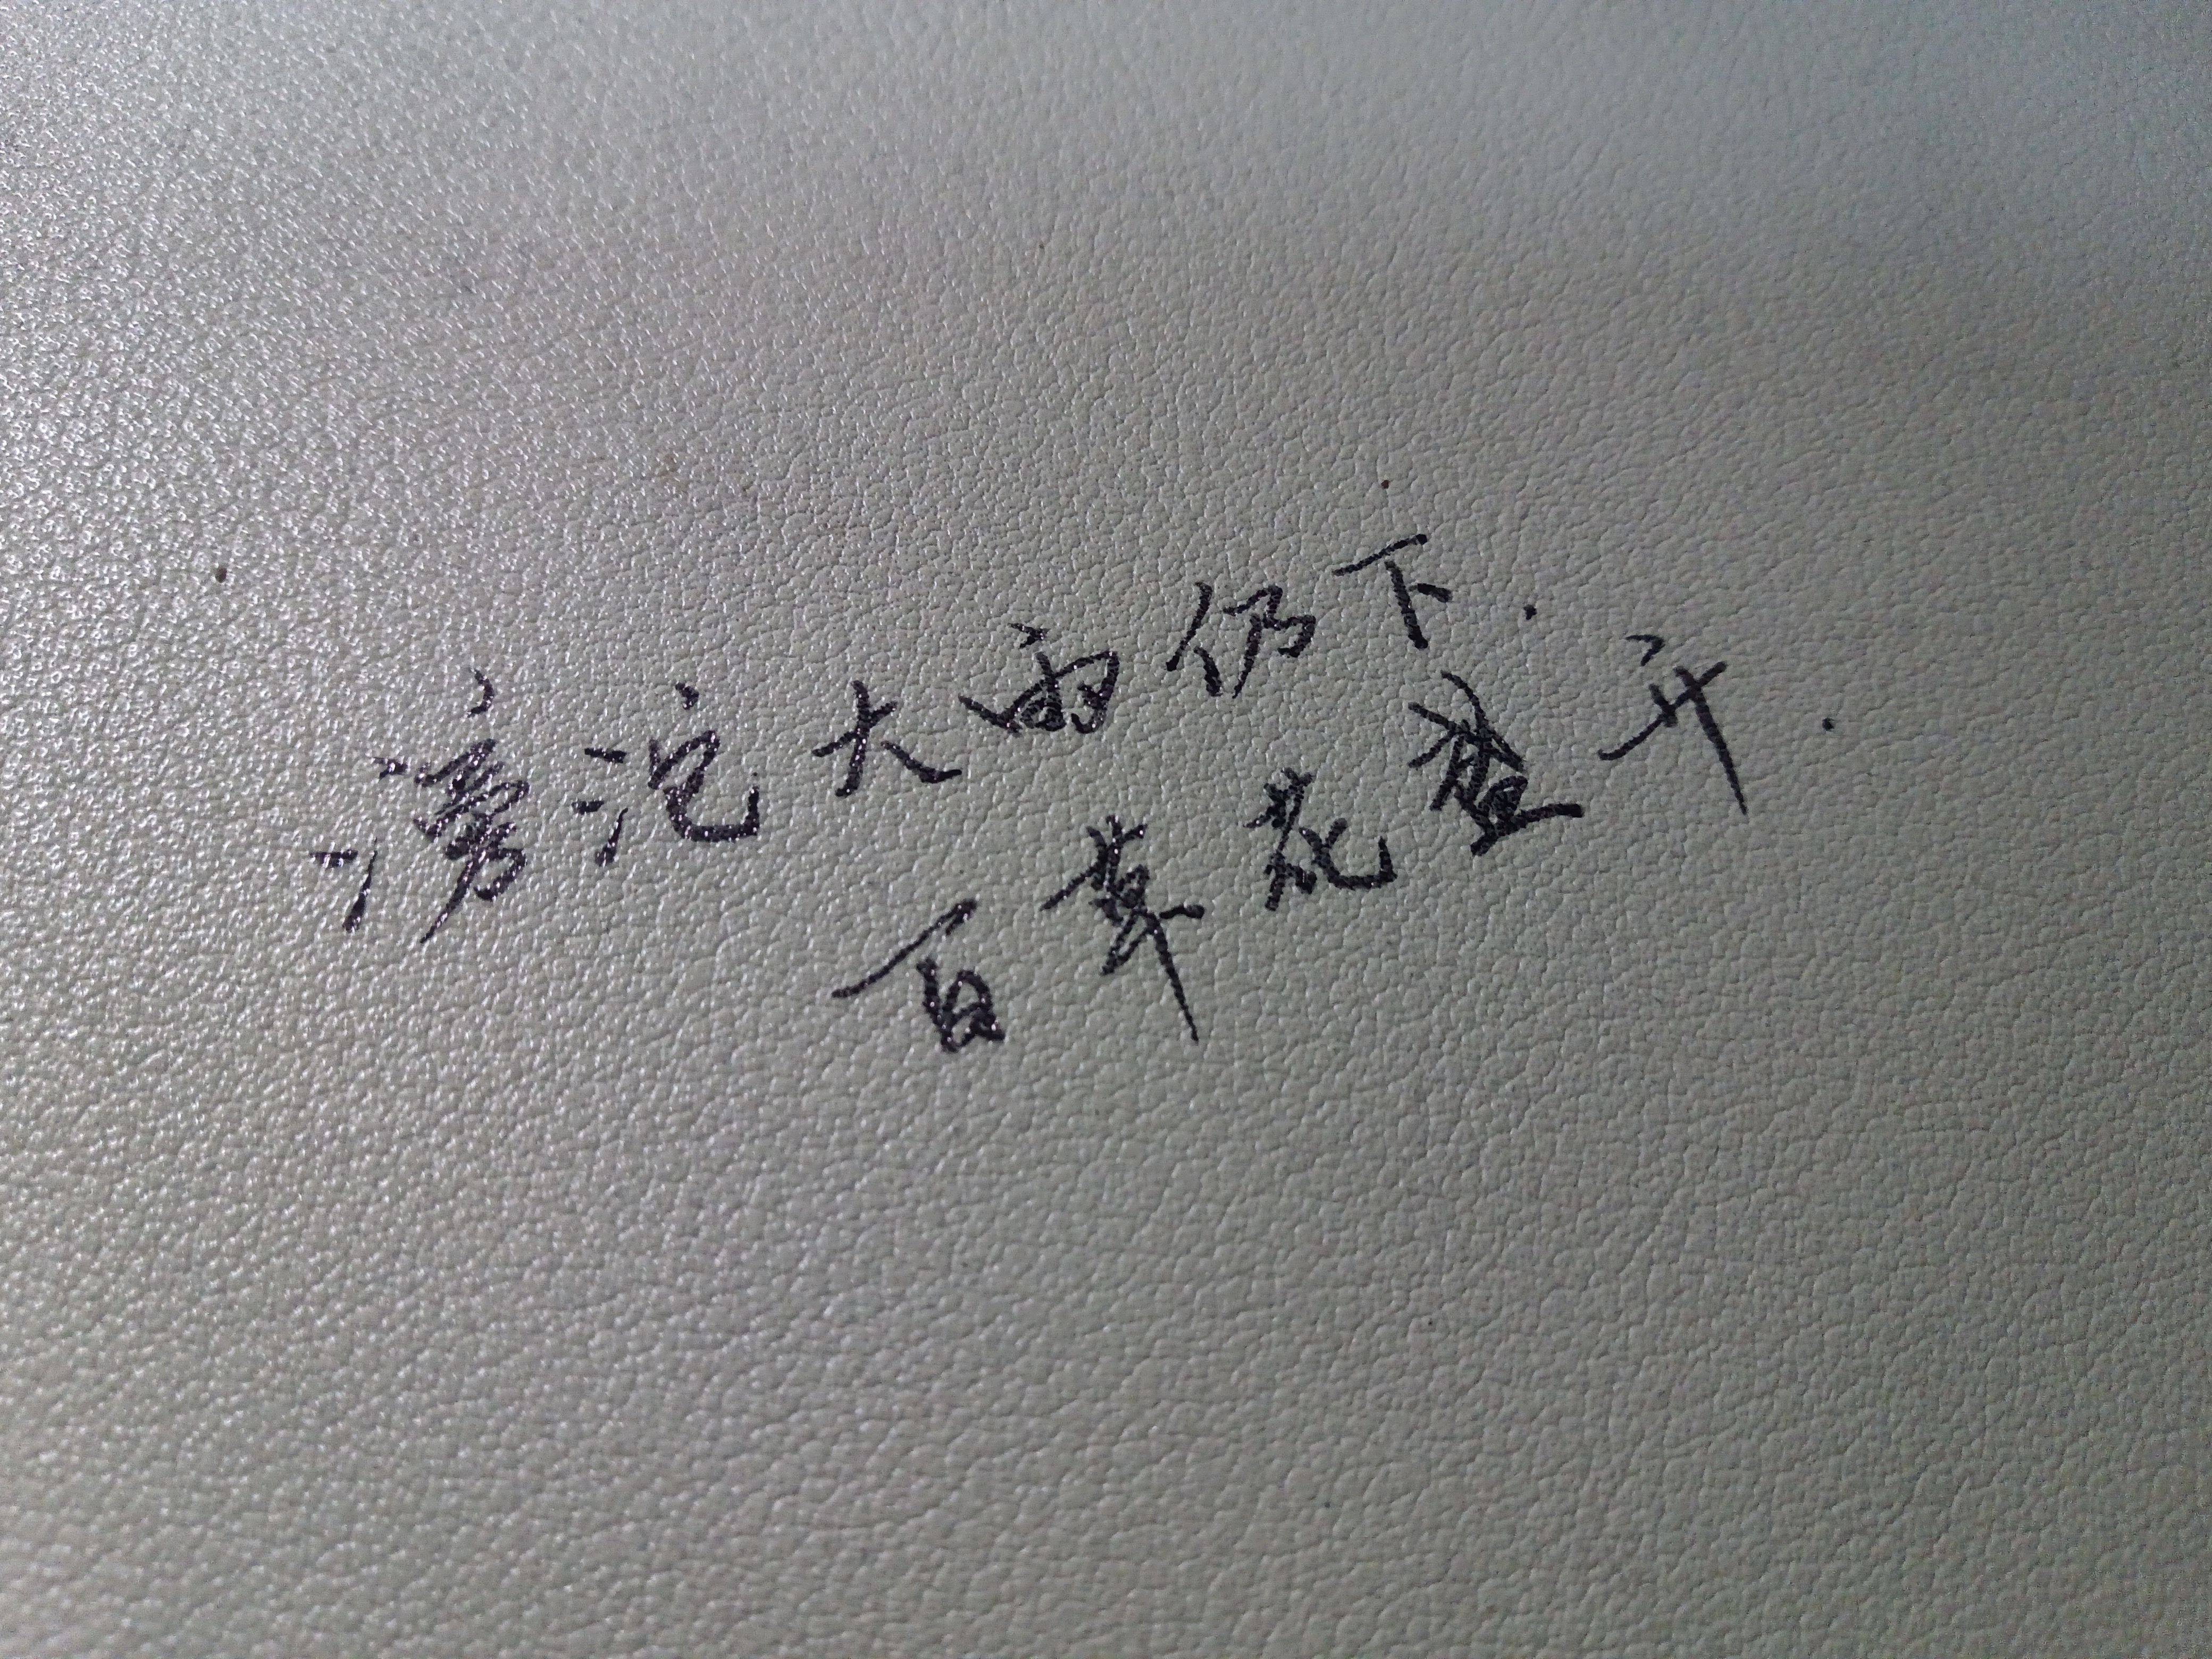 滂沱大雨仍下.
百草花齐开.